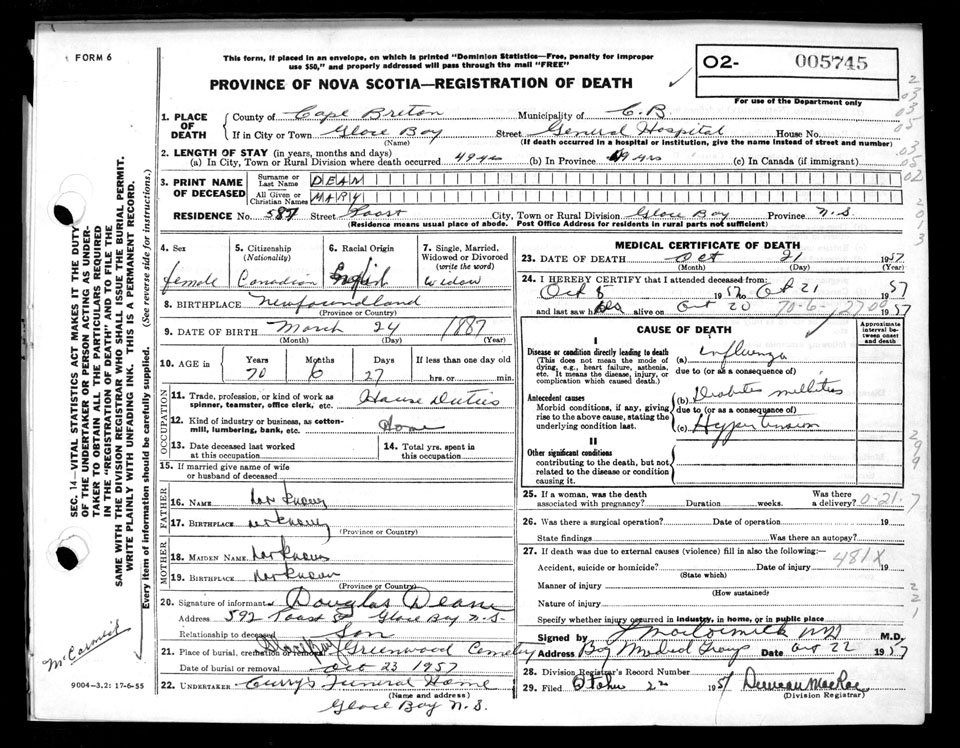 FORM 6
This form, if placed in an envelope, on which is printed "Dominion Statistics—Free, penalty for improper
use $50," and properly addressed will pass through the mail "FREE"
PROVINCE OF NOVA SCOTIA—REGISTRATION OF DEATH
O2- 005745
For use of the Department only
1. PLACE OF DEATH
County of Cape Breton Municipality of C.B.
If in City or Town Glace Bay Street General Hospital House No.
(Name) (If death occurred in a hospital or institution, give the name instead of street and number)
2. LENGTH OF STAY (in years, months and days)
(a) In City, Town or Rural Division where death occurred 49 yrs (b) In Province 49 yrs (c) In Canada (if immigrant)
3. PRINT NAME OF DECEASED
Surname or Last Name DEAN
All Given or Christian Names MARY
RESIDENCE No. 587 Street City, Town or Rural Division Glace Bay Province N.S.
(Residence means usual place of abode. Post Office Address for residents in rural parts not sufficient)
4. Sex female
5. Citizenship (Nationality) Canadian
6. Racial Origin English
7. Single, Married, Widowed or Divorced (write the word) Widow
8. BIRTHPLACE Newfoundland
(Province or Country)
9. DATE OF BIRTH March 24 1887
(Month) (Day) (Year)
10. AGE in Years Months Days If less than one day old
70 6 27 hrs. or min.
OCCUPATION
11. Trade, profession, or kind of work as spinner, teamster, office clerk, etc. House Duties
12. Kind of industry or business, as cotton-mill, lumbering, bank, etc. Home
13. Date deceased last worked at this occupation
14. Total yrs. spent in this occupation
15. If married give name of wife or husband of deceased
FATHER
16. NAME not known
17. BIRTHPLACE not known
(Province or Country)
MOTHER
18. MAIDEN NAME not known
19. BIRTHPLACE not known
(Province or Country)
20. Signature of informant Douglas Deane
Address 592 St Glace Bay N.S.
Relationship to deceased Son
21. Place of burial, cremation or removal Greenwood Cemetery
Date of burial or removal Oct 23 1957
22. UNDERTAKER Curry's Funeral Home
Glace Bay N.S.
MEDICAL CERTIFICATE OF DEATH
23. DATE OF DEATH Oct 21 1957
(Month) (Day) (Year)
24. I HEREBY CERTIFY that I attended deceased from:
Oct 5 1957 to Oct 21 1957
and last saw h alive on Oct 20 1957
70-6-27
CAUSE OF DEATH
Approximate interval between onset and death
I
Disease or condition directly leading to death
(This does not mean the mode of dying, e.g., heart failure, asthenia, etc. It means the disease, injury, or complication which caused death.)
(a) Influenza
due to (or as a consequence of)
Antecedent causes
Morbid conditions, if any, giving rise to the above cause, stating the underlying condition last.
(b) Diabetes millitis
due to (or as a consequence of)
(c) Hypertension
II
Other significant conditions
contributing to the death, but not related to the disease or condition causing it.
25. If a woman, was the death associated with pregnancy? Duration weeks. Was there a delivery? 0-21-7
26. Was there a surgical operation? Date of operation 19
State findings Was there an autopsy?
27. If death was due to external causes (violence) fill in also the following:
481X
Accident, suicide or homicide? Date of injury 19
(State which)
Manner of injury
(How sustained)
Nature of injury
Specify whether injury occurred in industry, in home, or in public place
Signed by J MacCormick MD M.D.
Address Bay Medical Group Date Oct 22 1957
28. Division Registrar's Record Number
29. Filed October 22 1957 Duncan MacRae
(Division Registrar)
SEC. 14—VITAL STATISTICS ACT MAKES IT THE DUTY
OF THE UNDERTAKER OR PERSON ACTING AS UNDER-
TAKER TO OBTAIN ALL THE PARTICULARS REQUIRED
IN THE "REGISTRATION OF DEATH" AND TO FILE THE
SAME WITH THE DIVISION REGISTRAR WHO SHALL ISSUE THE BURIAL PERMIT.
WRITE PLAINLY WITH UNFADING INK. THIS IS A PERMANENT RECORD.
Every item of information should be carefully supplied. (See reverse side for instructions.)
McCormick
9004-3.2: 17-6-55